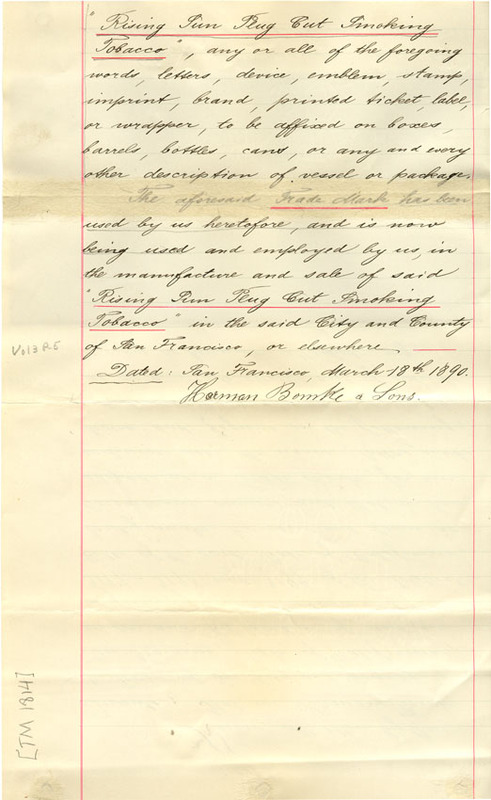 "Rising Sun Plug Cut Smoking
Tobacco", any or all of the foregoing
words, letters, device, emblem, stamp,
imprint, brand, printed ticket, label,
or wrapper, to be affixed on boxes,
barrels, bottles, cans, or any and every
other description of vessel or package.
The aforesaid Trade Mark has been
used by us heretofore, and is now
being used and employed by us, in
the manufacture and sale of said
"Rising Sun Plug Cut Smoking
Tobacco" in the said City and County
of San Francisco, or elsewhere
Dated: San Francisco, March 18th 1890.
Herman Bomke & Sons.
Vol 3 R5
[TM 1814]